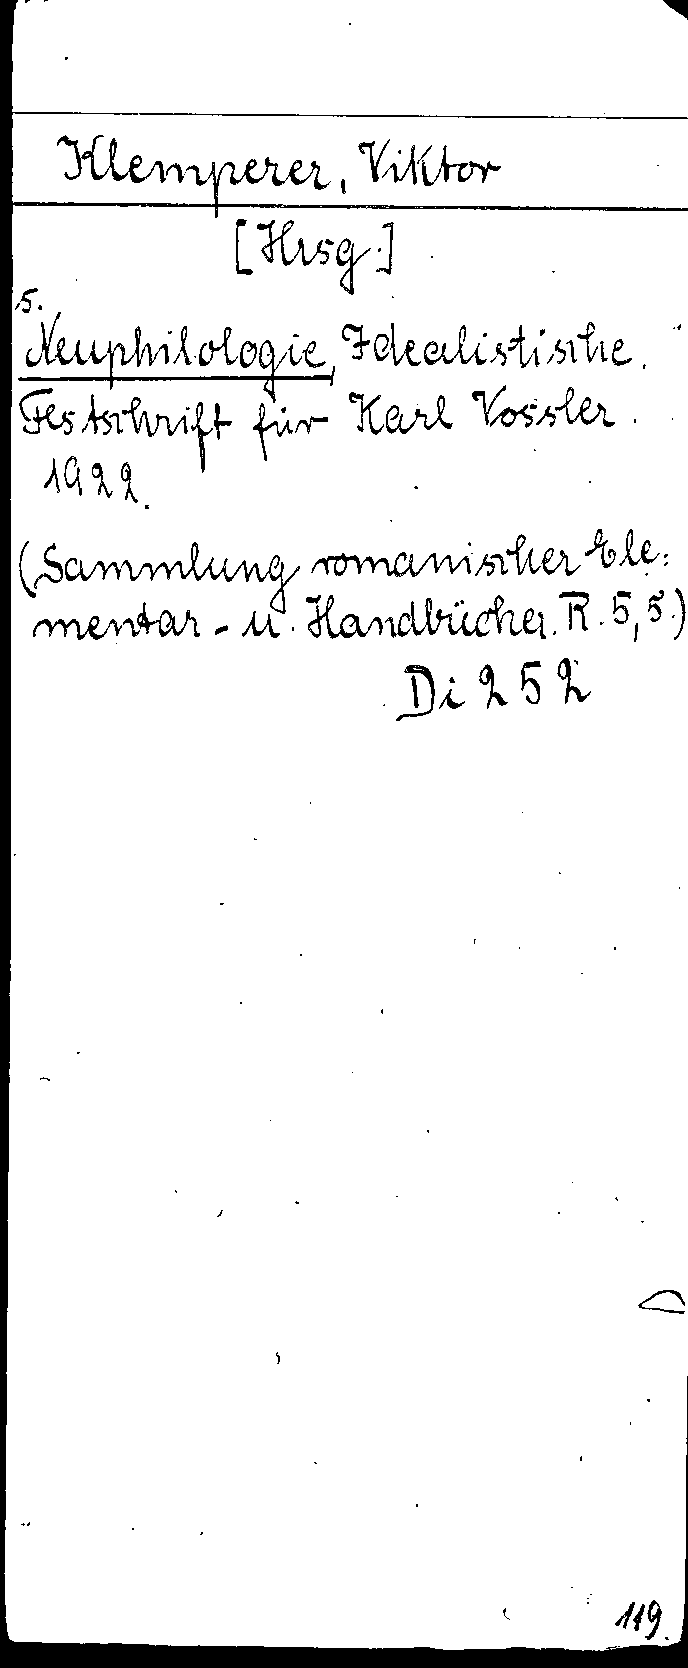 Klemperer, Viktor
[Hrsg.]
5.
Neuphilologie, Idealistische.
Festschrift für Karl Vossler.
1922.
(Sammlung romanischer Ele=
mentar- u. Handbücher. R. 5,5.)
Di 252
119.